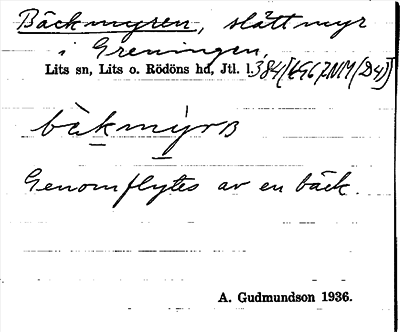 Bäckmyren, slåttmyr
i Greningen,
Lits sn, Lits o. Rödöns hd, Jtl. l.
bàkmy̆rɴ
Genomflytes av en bäck.
A. Gudmundson 1936.